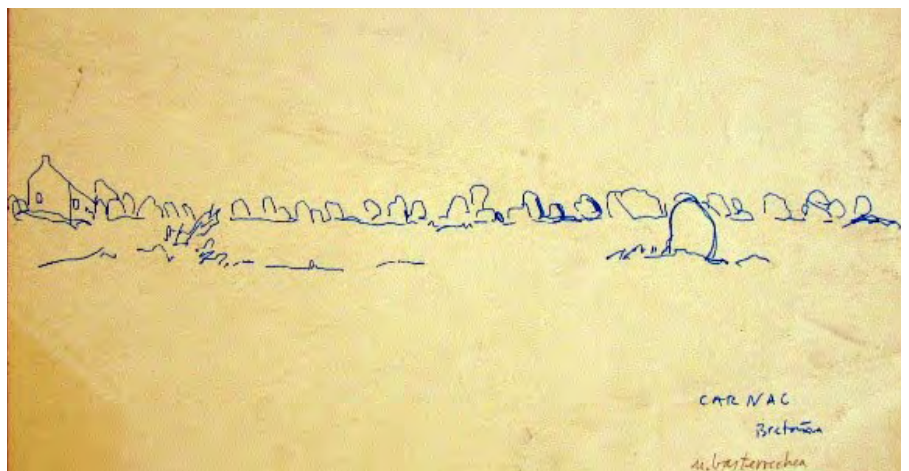 CARNAC
Bretaña
n. basterrechea